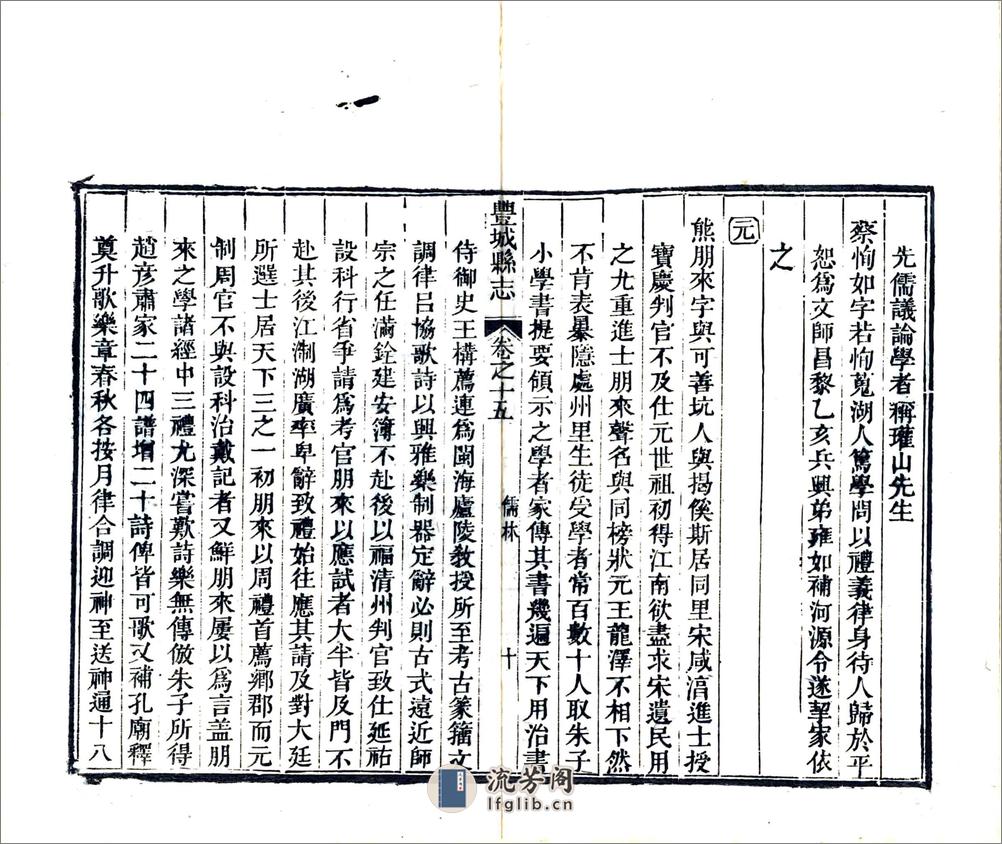 先儒議論學者稱瓘山先生
蔡恂如字若恂蒐湖人篤學問以禮義律身待人歸於平
恕爲文師昌黎乙亥兵興弟雍如補河源令遂挈家依
之
元
熊朋來字與可善坑人與揭傒斯居同里宋咸淳進士授
寶慶判官不及仕元世祖初得江南欲盡求宋遺民用
之尤重進士朋來聲名與同榜狀元王龍澤不相下然
不肯表暴隱處州里生徒受學者常百數十人取朱子
小學書提要領示之學者家傳其書幾遍天下用治書
豐城縣志
卷之十五
儒林
十
侍御史王構薦連爲閩海廬陵教授所至考古篆籀文
調律呂協歌詩以興雅樂制器定辭必則古式遠近師
宗之任滿銓建安簿不赴後以福清州判官致仕延祐
設科行省爭請爲考官朋來以應試者大半皆及門不
赴其後江淛湖廣率卑辭致禮始往應其請及對大廷
所選士居天下三之一初朋來以周禮首薦鄉郡而元
制周官不與設科治戴記者又鮮朋來屢以爲言盖朋
來之學諸經中三禮尤深嘗歎詩樂無傳倣朱子所得
趙彥肅家二十四譜增二十詩俾皆可歌又補孔廟釋
奠升歌樂章春秋各按月律合調迎神至送神通十八
流芳阁
lfglib.cn